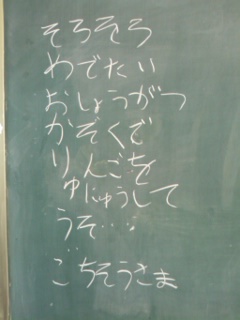 そろそろ
めでたい
おしょうがつ
かぞくで
りんごを
ゆにゅうして
うそ…。
ごちそうさま